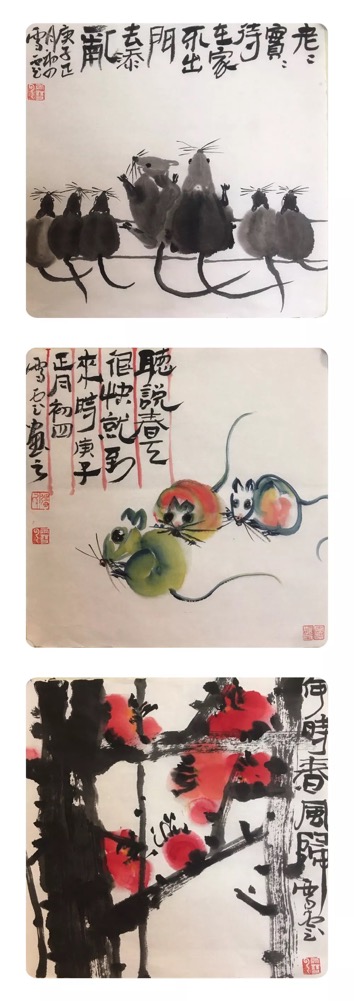 老〻
實〻
待
在家
不出
門
去添
亂
庚子正
月初四
雪云
聽説春天
很快就到
來時庚子
正月初四
雪云畫之
何時春風歸 雪云